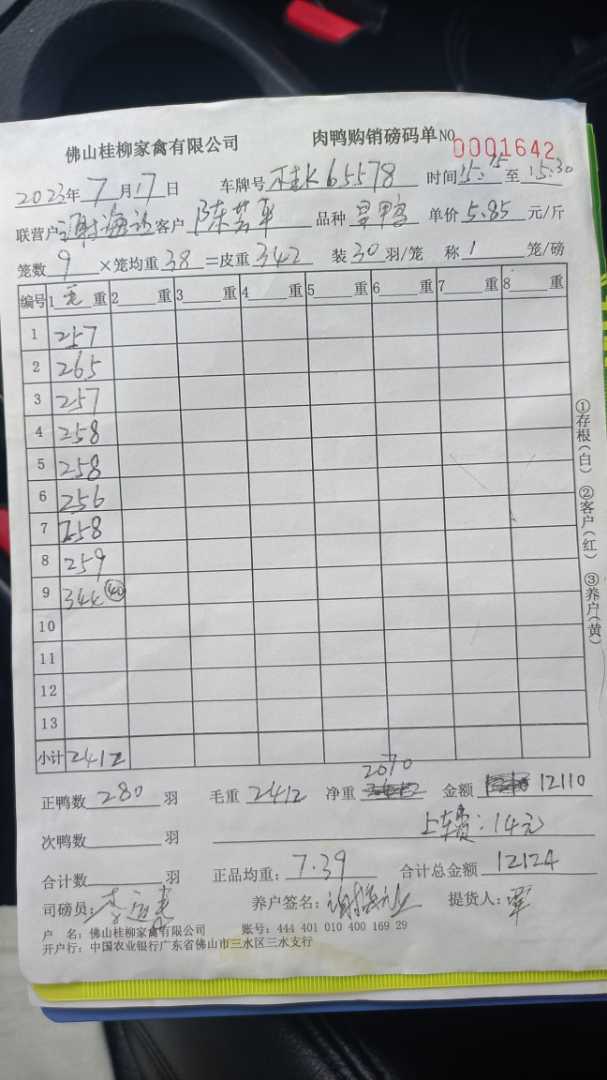 佛山桂柳家禽有限公司 肉鸭购销磅码单 NO 0001642
2023年7月17日 车牌号 桂K65578 时间15:15至15:30
联营户 谢海 客户 陈芸平 品种 旱鸭 单价 5.85 元/斤
笼数 9 ×笼均重 38 =皮重 342 装 30 羽/笼 称 1 笼/磅
编号 1 毛 重 2 重 3 重 4 重 5 重 6 重 7 重 8 重
1 257
2 265
3 257
4 258
5 258
6 256
7 258
8 259
9 344 (40)
10
11
12
13
小计 2412
2070
正鸭数 280 羽 毛重 2412 净重 金额 12110
次鸭数 羽 上车费:14元
合计数 羽 正品均重: 7.39 合计总金额 12124
司磅员: 李 养户签名: 谢海 提货人:
户 名: 佛山桂柳家禽有限公司 账号: 444 401 010 400 169 29
开户行: 中国农业银行广东省佛山市三水区三水支行
①存根(白) ②客户(红) ③养户(黄)